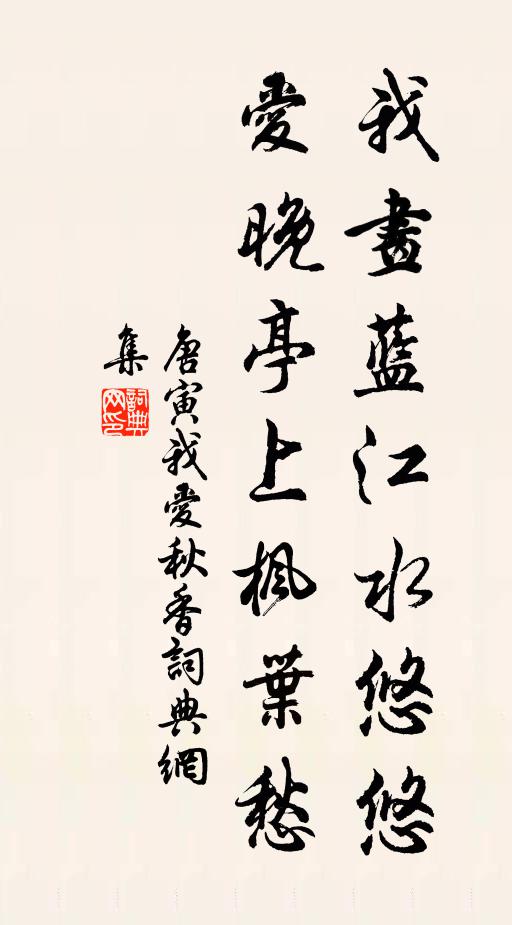 我畫藍江水悠悠
愛晚亭上楓葉愁
唐寅我愛秋香詞典網
集
詞典
网印